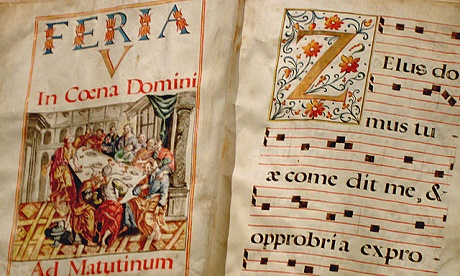 FERIA
V
In Cœna Domini
Ad Matutinum
Z
Elus do
mus tu
æ come dit me, &
opprobria expro-